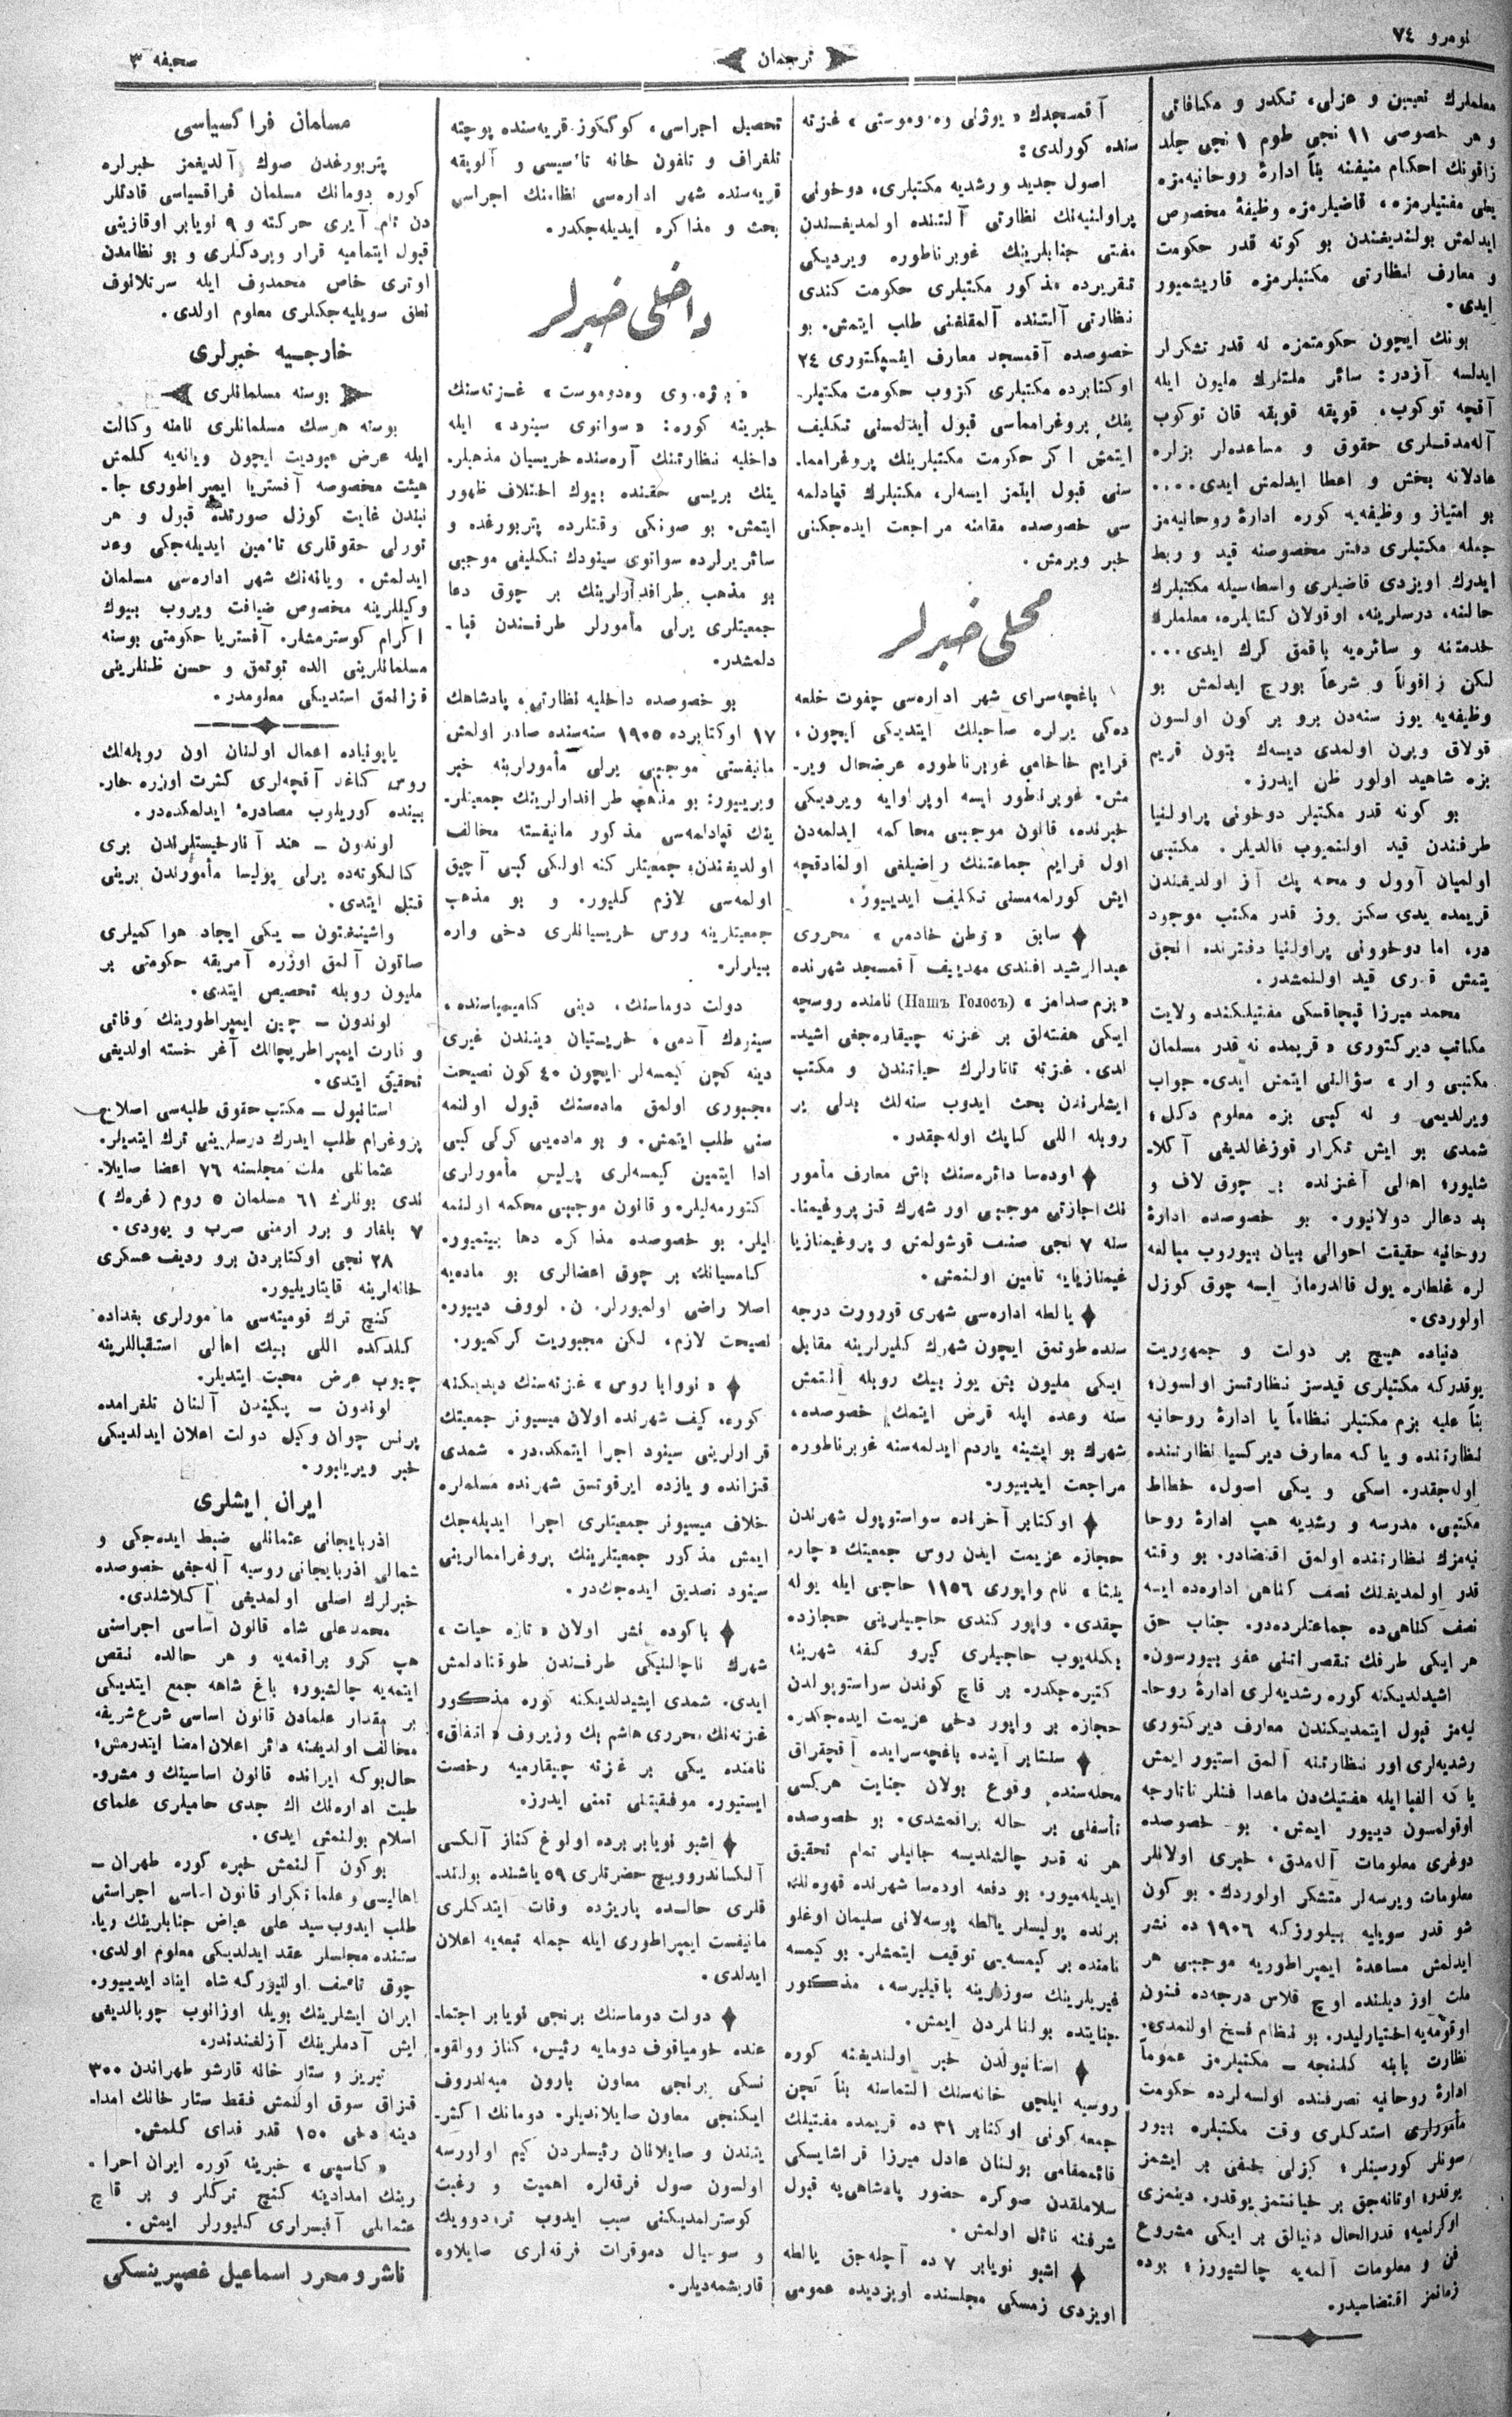 نومرو ٧٤
ترجمان
صحیفه ٣
معلملرك تعیین و عزلی، تكدر و مكافاتی
و هر خصوصی ١١ نجی طوم ١ نجی جلد
زاقونك احكام منیفنه بنأ ادارۀ روحانیه‌مزه
یعلی مفتیلرمزه، قاضیلرمزه وظیفۀ مخصوص
ایدلمش بولندیغندن بو كونه قدر حكومت
و معارف نظارتی مكتبلرمزه قاریشمیور
ایدی.
بونك ایچون حكومتمزه نه قدر تشكرلر
ایدلسه آزدر: سائر ملتلرك ملیون ایله
آقچه توكوب، قویقه قویقه قان توكوب
آله‌مدقلری حقوق و مساعده‌لر بزلره
عادلانه بخش و اعطا ایدلمش ایدی....
بو امتیاز و وظیفه‌یه كوره ادارۀ روحانیه‌مز
جمله مكتبلری دفتر مخصوصنه قید و ربط
ایدرك اویزدی قاضیلری واسطه‌سیله مكتبلرك
حالنه، درسلرینه، اوقولان كتابلره، معلملرك
خدمتنه و سائره‌یه باقمق كرك ایدی...
لكن زاقوناً و شرعاً بورج ایدلمش بو
وظیفه‌یه یوز سنه‌دن برو بر كون اولسون
قولاق ویرن اولمدی دیسه‌ك بتون قریم
بزه شاهید اولور ظن ایدرز.
بو كونه قدر مكتبلر دوخونی پراولنیا
طرفندن قید اولنمیوب قالدیلر. مكتبی
اولمیان آوول و محله پك آز اولدیغندن
قریمده یدی سكز یوز قدر مكتب موجود
در، اما دوخوونی پراولنیا دفترنده آنجق
یتمش قدری قید اولنمشدر.
محمد میرزا قپچاقسكی مفتیلكنده ولایت
مكاتب دیركتوری «قریمده نه قدر مسلمان
مكتبی وار» سؤالنی ایتمش ایدی. جواب
ویرلدیمی و نه كبی بزه معلوم دكل؛
شمدی بو ایش تكرار قوزغالدیغی آكلا-
شلیور؛ اهالی آغزنده بر چوق لاف و
بد دعالر دولانیور. بو خصوصده ادارۀ
روحانیه حقیقت احوالی بیان بیوروب مبالغه
لره غلطلره یول قالدرماز ایسه چوق كوزل
اولوردی.
دنیاده هیچ بر دولت و جمهوریت
یوقدركه مكتبلری قیدسز نظارتسز اولسون؛
بنأ علیه بزم مكتبلر نظاماً یا ادارۀ روحانیه
نظارتنده و یا كه معارف دیركسیا نظارتنده
اوله‌جقدر. اسكی و یكی اصول، خطاط
مكتبی، مدرسه و رشدیه هپ ادارۀ روحا
نیه‌مزك نظارتنده اولمق اقتضادر. بو وقته
قدر اولمدیغنك نصف كناهی اداره‌ده ایسه
نصف كناهی‌ده جماعتلرده‌در. جناب حق
هر ایكی طرفك تقصراتنی عفو بیورسون.
اشیدلدیكنه كوره رشدیه‌لری ادارۀ روحا-
نیه‌مز قبول ایتمدیكندن معارف دیركتوری
رشدیه‌لری اوز نظارتنه آلمق استیور ایمش
یا كه الفبا ایله هفتیك‌دن ماعدا فنلر تاتارجه
اوقولمسون دییور ایمش. بو خصوصده
دوغری معلومات آله‌مدق. خبری اولانلر
معلومات ویرسه‌لر متشكر اولوردك. بو كون
شو قدر سویلیه بیلورزكه ١٩٠٦ ده نشر
ایدلمش مساعدۀ ایمپراطوریه موجبی هر
ملت اوز دیلنده اوچ قلاس درجه‌ده فنون
اوقومه‌یه اختیارلیدر. بو نظام فسخ اولنمدی.
نظارت بابنه كلنجه – مكتبلرمز عموماً
ادارۀ روحانیه تصرفنده اولسه‌لرده حكومت
مأمورلری استدكلری وقت مكتبلره بیور
سونلر كورسینلر؛ كزلی خفی بر ایشمز
یوقدر؛ اوتانه‌جق بر خیانتمز یوقدر. دینمزی
اوكرنمیه؛ قدرالحال دنیالق بر ایكی مشروع
فن و معلومات آلمه‌یه چالشیورز؛ بوده
زمانمز اقتضاسیدر.
آقمسجدك «یوژنی وه‌دوموستی» غزته
سنده كورلدی:
اصول جدید و رشدیه مكتبلری، دوخونی
پراولنیه‌نك نظارتی آلتنده اولمدیغندن
مفتی جنابلرینك غوبرناطوره ویردیكی
تقریرده مذكور مكتبلری حكومت كندی
نظارتی آلتنده آلمقلغنی طلب ایتمش. بو
خصوصده آقمسجد معارف اینسپكتوری ٢٤
اوكتابرده مكتبلری كزوب حكومت مكتبلر-
ینك پروغرامماسی قبول ایدلمسنی تكلیف
ایتمش اكر حكومت مكتبلرینك پروغرامما-
سنی قبول ایتمز ایسه‌لر، مكتبلرك قپادلمه
سی خصوصده مقامنه مراجعت ایده‌جكنی
خبر ویرمش.
محلی خبرلر
باغچه‌سرای شهر اداره‌سی چفوت خلعه
ده‌كی یرلره صاحبلك ایتدیكی ایچون،
قرایم خاخامی غوبرناطوره عرضحال ویر-
مش. غوبرناطور ایسه اوپراوایه ویردیكی
خبرنده، قانون موجبی محاكمه ایدلمه‌دن
اول قرایم جماعتنك راضیلغی اولمادقچه
ایش كورلمه‌مسنی تكلیف ایدیيور.
سابق «وطن خادمی» محرری
عبدالرشید افندی مهدییف آقمسجد شهرنده
«بزم صدامز» (Нашъ Голосъ) نامنده روسچه
ایكی هفته‌لق بر غزته چیقاره‌جغی اشید-
لدی. غزته تاتارلرك حیاتندن و مكتب
ایشلرندن بحث ایدوب سنه‌لك بدلی بر
روبله اللی كاپك اوله‌جقدر.
اوده‌سا دائره‌سنك باش معارف مامور
نك اجازتی موجبی اور شهرك قز پروغیمنا-
سنه ٧ نجی صنف قوشولمش و پروغیمنازیا
غیمنازیایه تامین اولنمش.
یالطه اداره‌سی شهری قورورت درجه
سنده طوتمق ایچون شهرك كلیرلرینه مقابل
ایكی ملیون بش یوز بیك روبله آلتمش
سنه وعده ایله قرض ایتمك خصوصده،
شهرك بو ایشینه یاردم ایدلمه‌سنه غوبرناطوره
مراجعت ایدیيور.
اوكتابر آخرنده سواستوپول شهرندن
حجازه عزیمت ایدن روس جمعیتك «چار-
یتسا» نام واپوری ١١٥٦ حاجی ایله یوله
چقدی. واپور كندی حاجیلرینی حجازده
بكله‌یوب حاجیلری كیرو كفه شهرینه
كتیره‌جكدر. بر قاچ كوندن سواستوپولدن
حجازه بر واپور دخی عزیمت ایده‌جكدر.
سنتابر آینده باغچه‌سرایده آقچقراق
محله‌سنده وقوع بولان جنایت هركسی
تأسفلی بر حاله براقمشدی. بو خصوصده
هر نه قدر چالشلدیسه جانیلر تمام تحقیق
ایدیله‌میور. بو دفعه اوده‌سا شهرنده قهوه‌خانه
برنده پولیسلر یالطه پوسه‌لانی سلیمان اوغلو
نامنده بر كیمسه‌یی توقیف ایتمشلر. بو كیمسه
غیریلرینك سوزلرینه باقیلیرسه، مذكور
جنایتده بولنانلردن ایمش.
استانبولدن خبر اولندیغنه كوره
روسیه ایلچی خانه‌سنك التماسنه بنأ كچن
جمعه كونی اوكتابر ٣١ ده قریمده مفتیلك
قائممقامی بولنان عادل میرزا قراشایسكی
سلاملقدن صوكره حضور پادشاهی‌یه قبول
شرفنه نائل اولمش.
اشبو نویابر ٧ ده آچله‌جق یالطه
اویزدی زمسكی مجلسنده اویزدیده عمومی
تحصیل اجراسی، كوككوز قریه‌سنده پوچته
تلغراف و تلفون خانه تاسیسی و آلوپقه
قریه‌سنده شهر اداره‌سی نظامنك اجراسی
بحث و مذاكره ایدیله‌جكدر.
داخلی خبرلر
«بیرژه‌وی وه‌دوموست» غزته‌سنك
خبرینه كوره: «سوانوی سینود» ایله
داخلیه نظارتنك آره‌سنده خریسیان مذهبلر-
ینك بریسی حقنده بیوك اختلاف ظهور
ایتمش. بو صونكی وقتلرده پتربورغده و
سائر یرلرده سوانوی سینودك تكلیفی موجبی
بو مذهب طرافدارلرینك بر چوق دعا
جمعیتلری یرلی مأمورلر طرفندن قپا-
دلمشدر.
بو خصوصده داخلیه نظارتی، پادشاهك
١٧ اوكتابرده ١٩٠٥ سنه‌سنده صادر اولمش
مانیفستی موجبی یرلی مأمورلرینه خبر
ویریيور: بو مذهب طرافدارلرینك جمعیتلر-
ینك قپادلمه‌سی مذكور مانیفسته مخالف
اولدیغندن؛ جمعیتلر كنه اولكی كبی آچیق
اولمه‌سی لازم كلیور. و بو مذهب
جمعیتلرینه روس خریسیانلری دخی واره
بیلرلر.
دولت دوماسنك، دینی كامیسیاسنده،
سینودك آدمی، خریستیان دینندن غیری
دینه كچن كیمسه‌لر ایچون ٤٠ كون نصیحت
مجبوری اولمق ماده‌سنك قبول اولنمه
سنی طلب ایتمش. و بو ماده‌یی كركی كبی
ادا ایتمین كیمسه‌لری پولیس مأمورلری
كتورمه‌لیلر، و قانون موجبی محكمه اولنمه
لیلر. بو خصوصده مذاكره دها بیتمیور.
كامسیانك بر چوق اعضالری بو ماده‌یه
اصلا راضی اولمیورلر. ن. لووف دیيور.
نصیحت لازم، لكن مجبوریت كركمیور.
«نووایا روس» غزته‌سنك دیدیكنه
كوره، كیف شهرنده اولان میسیونر جمعیتك
قرارلرینی سینود اجرا ایتمكده‌در. شمدی
قزانده و یازده ایرقوتسق شهرنده مسلملره
خلاف میسیونر جمعیتلری اجرا ایدیله‌جك
ایمش مذكور جمعیتلرینك پروغراممالرینی
سینود تصدیق ایده‌جك‌در.
باكوده نشر اولان «تازه حیات»
شهرك ناچالنیكی طرفندن طوقتادلمش
ایدی. شمدی ایشیدلدیكنه كوره مذكور
غزته‌نك محرری هاشم بك وزیروف «اتفاق»
نامنده یكی بر غزته چیقارمیه رخصت
ایستیور. موفقیتنی تمنی ایدرز.
اشبو نویابر برده اولوغ كناز آلكسی
آلكساندروویچ حضرتلری ٥٩ یاشنده بولند-
قلری حالده پاریزده وفات ایتدكلری
مانیفست ایمپراطوری ایله جمله تبعه‌یه اعلان
ایدلدی.
دولت دوماسنك برنجی نویابر اجتما-
عنده خومیاقوف دومایه رئیس، كناز وولقون
نسكی برنجی معاون بارون میه‌ندروف
ایكنجی معاون صایلاندیلر. دومانك اكثر-
یتندن و صایلانان رئیسلردن كیم اولورسه
اولسون صول فرقه‌لره اهمیت و رغبت
كوسترلمدیكنی سبب ایدوب ترودوویك
و سوسیال دموقرات فرقه‌لری صایلاوه
قاریشمه‌دیلر.
مسلمان فراكسیاسی
پتربورغدن صوك آلدیغمز خبرلره
كوره دومانك مسلمان فراقسیاسی قادتلر
دن تام آیری حركته و ٩ نویابر اوقازینی
قبول ایتمامیه قرار ویردكلری و بو نظامدن
اوتری خاص محمدوف ایله سرتلانوف
نطق سویلیه‌جكلری معلوم اولدی.
خارجیه خبرلری
بوسنه مسلمانلری
بوسنه هرسك مسلمانلری نامنه وكالت
ایله عرض عبودیت ایچون ویانه‌یه كلمش
هیئت مخصوصه آفستریا ایمپراطوری جا-
نبندن غایت كوزل صورتده قبول و هر
تورلی حقوقلری تأمین ایدیله‌جكی وعد
ایدلمش. ویانه‌نك شهر اداره‌سی مسلمان
وكیللرینه مخصوص ضیافت ویروب بیوك
اكرام كوسترمشلر. آفستریا حكومتی بوسنه
مسلمانلرینی الده توتمق و حسن ظنلرینی
قزانمق استدیكی معلومدر.
یاپونیاده اعمال اولنان اون روبله‌لك
روس كاغد آقچه‌لری كثرت اوزره خار-
بینده كوریلوب مصادره ایدلمكده‌در.
لوندون – هند آنارخیستلرندن بری
كالكوته‌ده یرلی پولیسا مأمورندن برینی
قتل ایتدی.
واشینغتون – یكی ایجاد هوا كمیلری
صاتون آلمق اوزره آمریقه حكومتی بر
ملیون روبله تخصیص ایتدی.
لوندون – چین ایمپراطورینك وفاتی
و نارت ایمپراطریچانك آغر خسته اولدیغی
تحقیق ایتدی.
استانبول – مكتب حقوق طلبه‌سی اصلاح
پروغرام طلب ایدرك درسلرینی ترك ایتدیلر.
عثمانلی ملت مجلسنه ٧٦ اعضا صایلا-
ندی بونلرك ٦١ مسلمان ٥ روم (غرەك)
٧ بلغار و برر ارمنی صرب و یهودی.
٢٨ نجی اوكتابردن برو ردیف عسكری
خانه‌لرینه قایتاریلیور.
كنج ترك قومیته‌سی مامورلری بغداده
كلدكده اللی بیك اهالی استقباللرینه
چیوب عرض محبت ایتدیلر.
لوندون – پكیندن آلنان تلغرامده
پرنس چوان وكیل دولت اعلان ایدلدیكی
خبر ویریلیور.
ایران ایشلری
اذربایجانی عثمانلی ضبط ایده‌جكی و
شمالی اذربایجانی روسیه آله‌جغی خصوصده
خبرلرك اصلی اولمدیغی آكلاشلدی.
محمدعلی شاه قانون اساسی اجراسنی
هپ كرو براقمه‌یه و هر حالده نقص
ایتمه‌یه چالشیور؛ باغ شاهه جمع ایتدیكی
بر مقدار علمادن قانون اساسی شرع شریفه
مخالف اولدیغنه دائر اعلان امضا ایتدرمش؛
حال‌بوكه ایرانده قانون اساسینك و مشرو-
طیت اداره‌نك اك جدی حامیلری علمای
اسلام بولنمش ایدی.
بوكون آلنمش خبره كوره طهران –
اهالیسی و علما تكرار قانون اساسی اجراسنی
طلب ایدوب سید علی عیاض جنابلرینك ریا-
ستنده مجلسلر عقد ایدلدیكی معلوم اولدی.
چوق تأسف اولنیور كه شاه ایناد ایدیيور.
ایران ایشلرینك بویله اوزانوب چوبالدیغی
ایش آدملرینك آزلغندندر.
تبریز و ستار خانه قارشو طهراندن ٣٠٠
قزاق سوق اولنمش فقط ستار خانك امدا-
دینه دخی ١٥٠ قدر فدای كلمش.
«كاسپی» خبرینه كوره ایران احرا-
رینك امدادینه كنج تركلر و بر قاچ
عثمانلی آفیسرلری كلیورلر ایمش.
ناشر و محرر اسماعیل غصپرینسكی